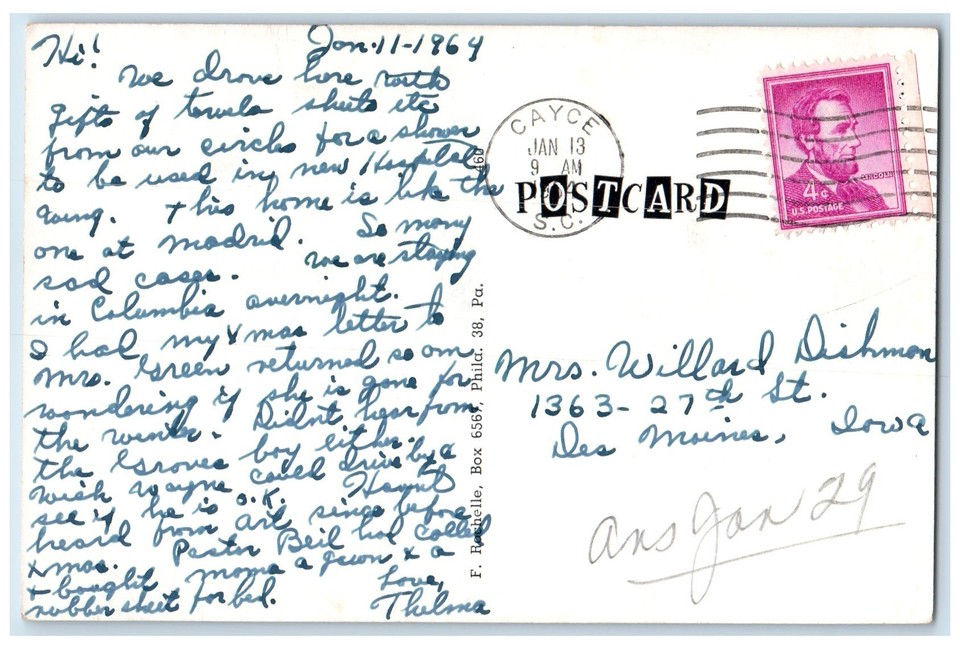 Hi! Jan-11-1964
We drove here with
gifts of towels sheets etc
from our circles for a shower
to be used in new Hospital
wing. This home is like the
one at Madrid. So many
sad cases. We are staying
in Columbia overnight.
I had my Xmas letter to
Mrs. Green returned so am
wondering if she is gone for
the winter. Didn't hear from
the Groves boy either.
wish Wayne could drive by &
see if he is O.K. Havn't
heard from Art since before
Xmas. Pastor Beil had called
& bought Moma a gown & a
rubber sheet for bed. Love,
Thelma
F. Rochelle, Box 6567, Phild. 38, Pa.
460
CAYCE
JAN 13
9 AM
S.C.
POSTCARD
LINCOLN
4¢
U.S. POSTAGE
Mrs. Willard Dishman
1363-27th St.
Des Moines, Iowa
Ans Jan 29